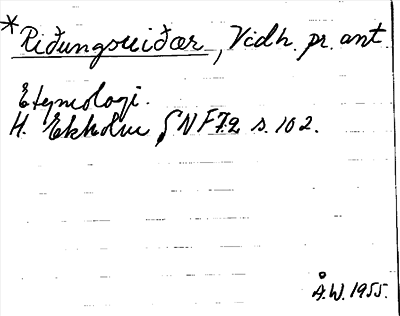 *Riðungsueiðær, Vidh. pr. ant.
Etymologi.
H. Ekholm, NF 72 s. 102.
Å.W. 1955.